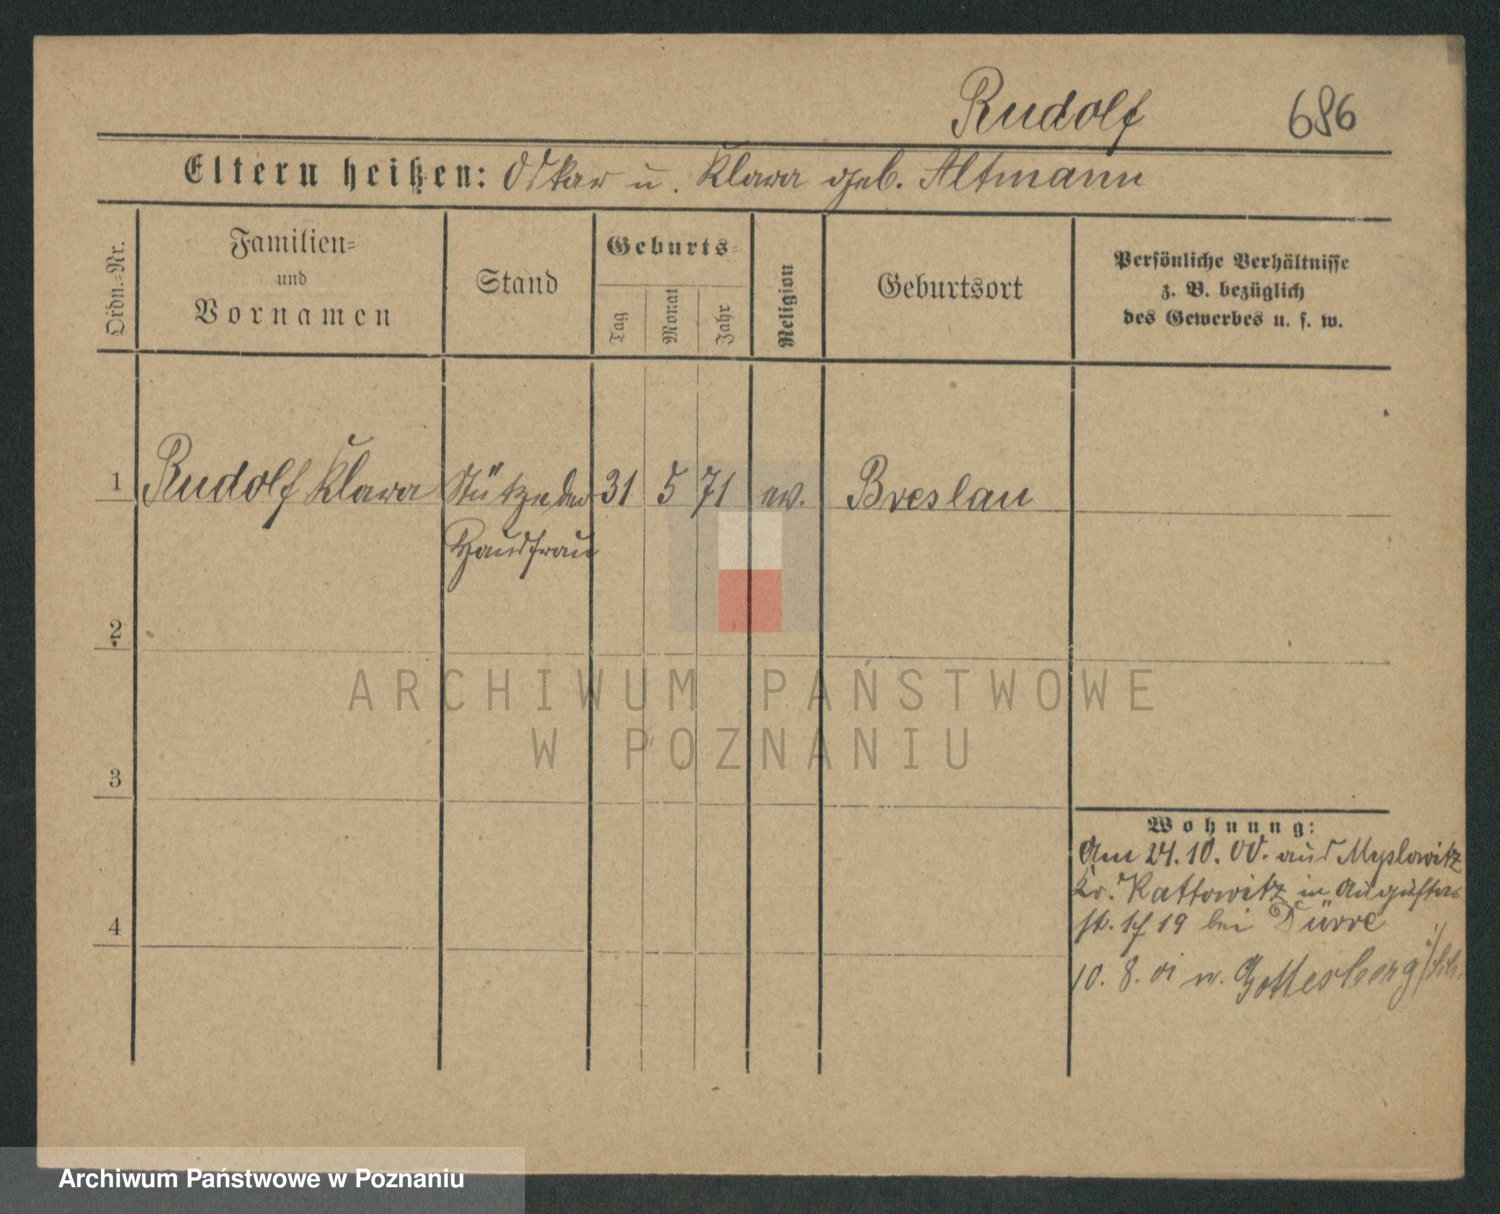 Rudolf 686
Eltern heißen: Oskar u. Klara geb. Altmann
Ordn.-Nr.
Familien-
und
Vornamen
Stand
Geburts-
Tag
Monat
Jahr
Religion
Geburtsort
Persönliche Verhältnisse
z. B. bezüglich
des Gewerbes u. s. w.
1 Rudolf Klara Stütze der 31 5 71 ev. Breslau
Hausfrau
2
3
4
Wohnung:
Am 24.10.00. aus Myslowitz
Kr. Kattowitz in Augusta-
st. 19 bei Dürre
10. 8. 01 n. Gottesberg
ARCHIWUM PAŃSTWOWE
W POZNANIU
Archiwum Państwowe w Poznaniu